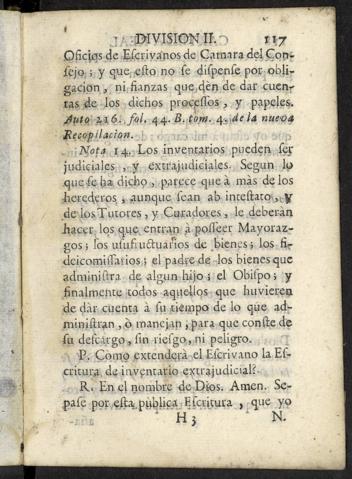 DIVISION II. 117
Oficios de Escrivanos de Camara del Con-
sejo; y que esto no se dispense por obli-
gacion, ni fianzas que den de dar cuen-
tas de los dichos processos, y papeles.
Auto 216. fol. 44. B. tom. 4. de la nueva
Recopilacion.
Nota 14. Los inventarios pueden ser
judiciales, y extrajudiciales. Segun lo
que se ha dicho, parece que à mas de los
herederos, aunque sean ab intestato, y
de los Tutores, y Curadores, le deberán
hacer los que entran à posseer Mayoraz-
gos; los usufructuarios de bienes; los fi-
deicomissarios; el padre de los bienes que
administra de algun hijo; el Obispo; y
finalmente todos aquellos que huvieren
de dar cuenta à su tiempo de lo que ad-
ministran, ò manejan, para que conste de
su descargo, sin riesgo, ni peligro.
P. Como extenderà el Escrivano la Es-
critura de inventario extrajudicial?
R. En el nombre de Dios. Amen. Se-
pase por esta publica Escritura, que yo
H 3 N.